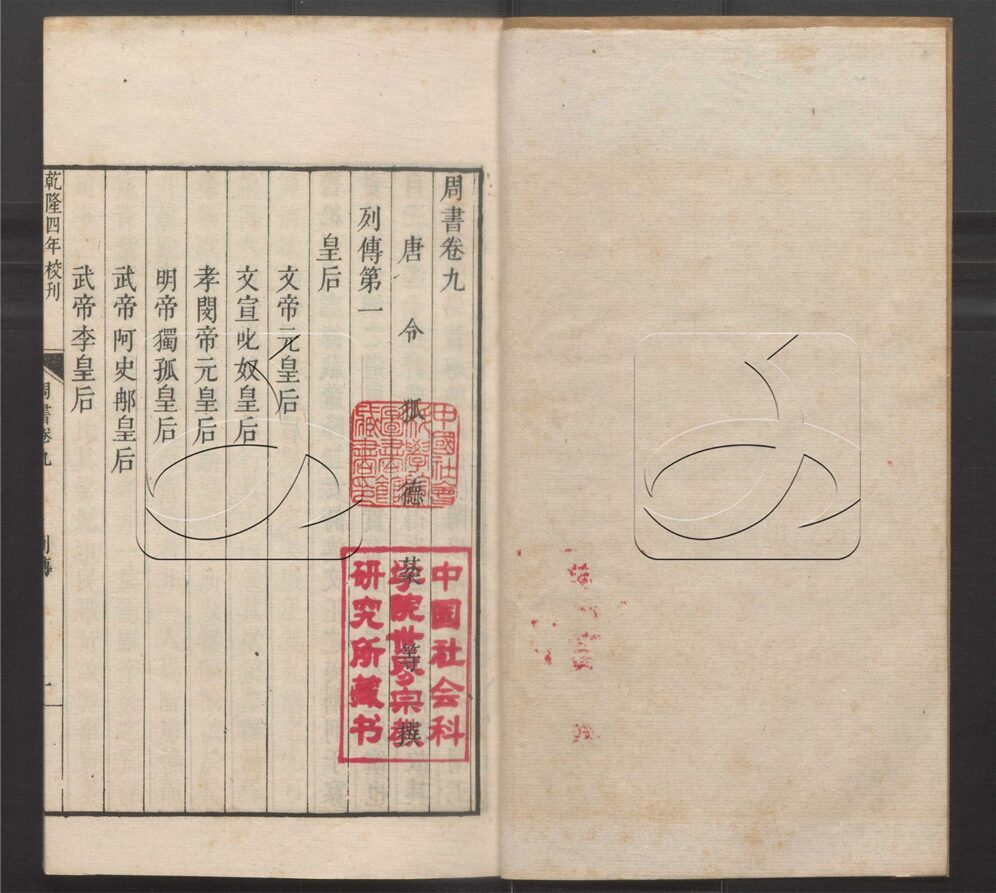 周書卷九
唐令狐德棻等撰
列傳第一
皇后
文帝元皇后
文宣叱奴皇后
孝閔帝元皇后
明帝獨孤皇后
武帝阿史那皇后
武帝李皇后
乾隆四年校刊
周書卷九
列傳
一
中國社會科學院圖書館藏書
中国社会科学院世界宗教研究所藏书